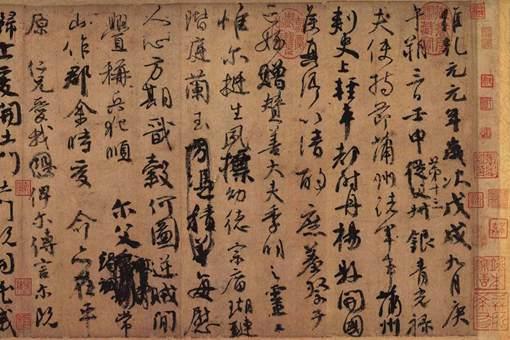 維乾元元年歲次戊戌九月庚
午朔三日壬申第十三從父銀青光祿
夫使持節蒲州諸軍事蒲州
刺史上輕車都尉丹楊縣開國
侯真卿以清酌庶羞祭于
亡姪贈贊善大夫季明之靈曰
惟爾挺生夙標幼德宗廟瑚璉
階庭蘭玉方憑積善每慰
人心方期戩穀何圖逆賊閒
釁稱兵犯順 爾父 常
山作郡余時受 命亦在平
原 仁兄愛我俾爾傳言爾既
歸止爰開土門土門既開凶威